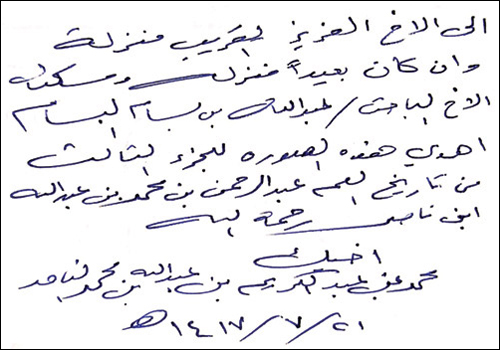 الى الاخ العزيز القريب منزلة
وان كان بعيداً منزله ومسكنه
الاخ الباحث / عبدالله بن بسام البسام
اهدي هذه الصوره للجزء الثالث
من تاريخ العم عبدالرحمن بن محمد بن عبدالله
ابن ناصر رحمة الله
اخيك
محمد بن عبدالكريم بن عبدالله بن محمد الناصر
٢١/٧/١٤١٧هـ